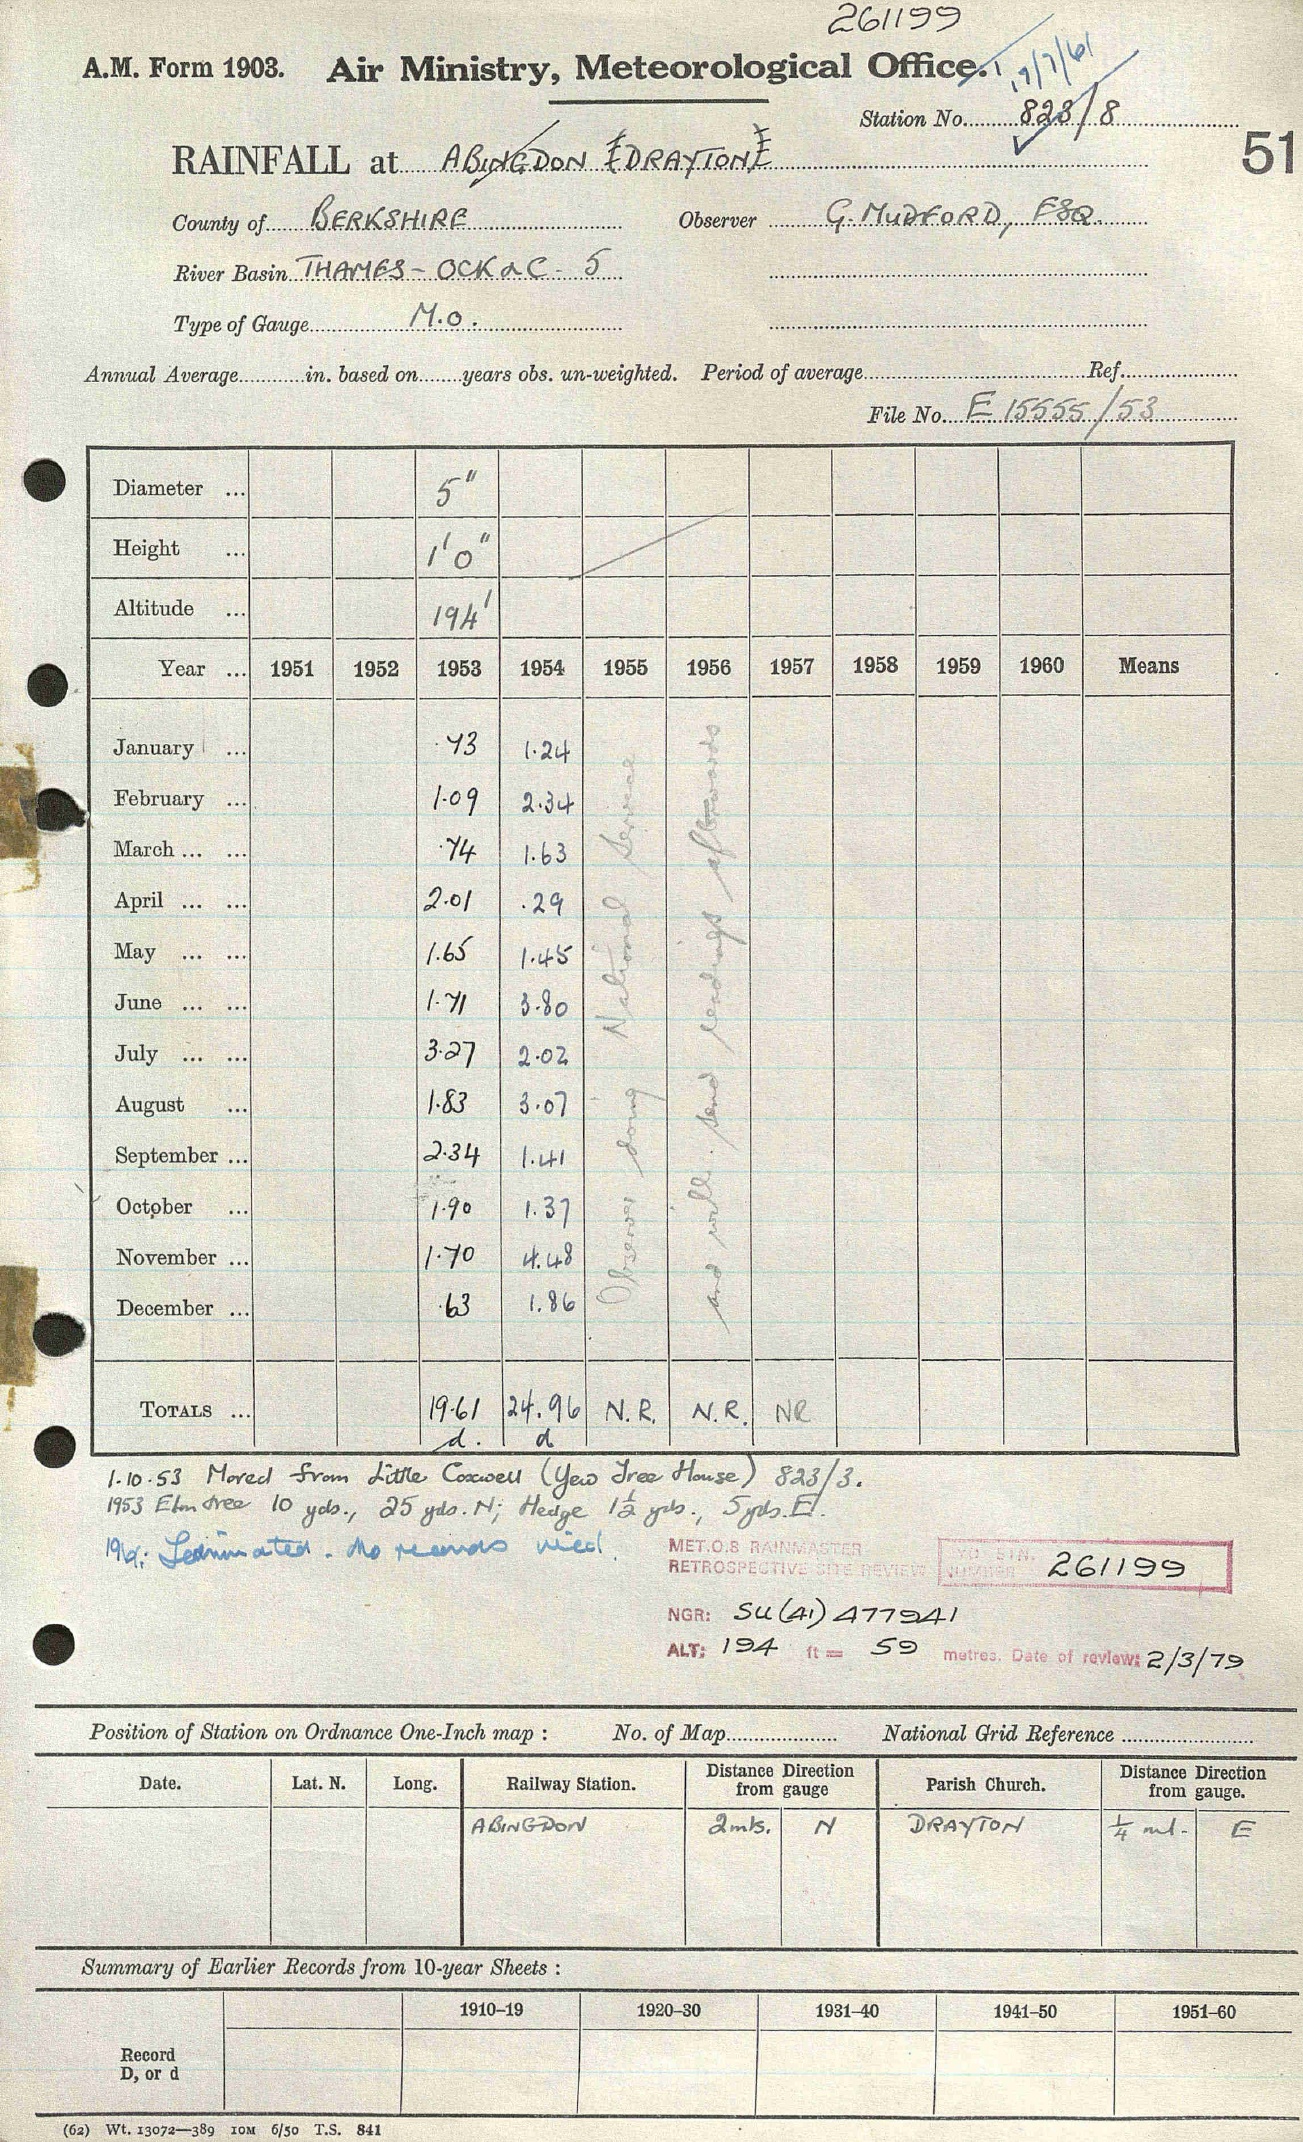 261199
A.M. Form 1903. Air Ministry, Meteorological Office.
19/7/61
Station No. 823/8
RAINFALL at ABINGDON (DRAYTON)
51
County of BERKSHIRE Observer G. MUDFORD, ESQ.
River Basin THAMES - OCK &C - 5
Type of Gauge M.O.
Annual Average in. based on years obs. un-weighted. Period of average Ref.
File No. E 15555/53
Diameter ... 5"
Height ... 1'0"
Altitude ... 194'
Year ... 1951 1952 1953 1954 1955 1956 1957 1958 1959 1960 Means
January ... .73 1.24
February ... 1.09 2.34
March ... ... .74 1.63
April ... ... 2.01 .29
May ... ... 1.65 1.45
June ... ... 1.71 3.80
July ... ... 3.27 2.02
August ... 1.83 3.07
September ... 2.34 1.41
October ... 1.90 1.37
November ... 1.70 4.48
December ... .63 1.86
Observer doing National Service
and will send readings afterwords
TOTALS ... 19.61 24.96 N.R. N.R. NR
d. d
1.10.53 Moved from Little Coxwell (Yew Tree House) 823/3.
1953 Elm tree 10 yds., 25 yds. N; Hedge 1½ yds., 5 yds. E.
Terminated. No records
MET.O.8 RAINMASTER
RETROSPECTIVE SITE REVIEW
STN. NUMBER 261199
NGR: SU(41) 477941
ALT: 194 ft = 59 metres. Date of review: 2/3/79
Position of Station on Ordnance One-Inch map : No. of Map National Grid Reference
Date. Lat. N. Long. Railway Station. Distance Direction from gauge Parish Church. Distance Direction from gauge.
ABINGDON 2mls. N DRAYTON ¼ ml. E
Summary of Earlier Records from 10-year Sheets :
1910–19 1920–30 1931–40 1941–50 1951–60
Record
D, or d
(62) Wt. 13072—389 10M 6/50 T.S. 841